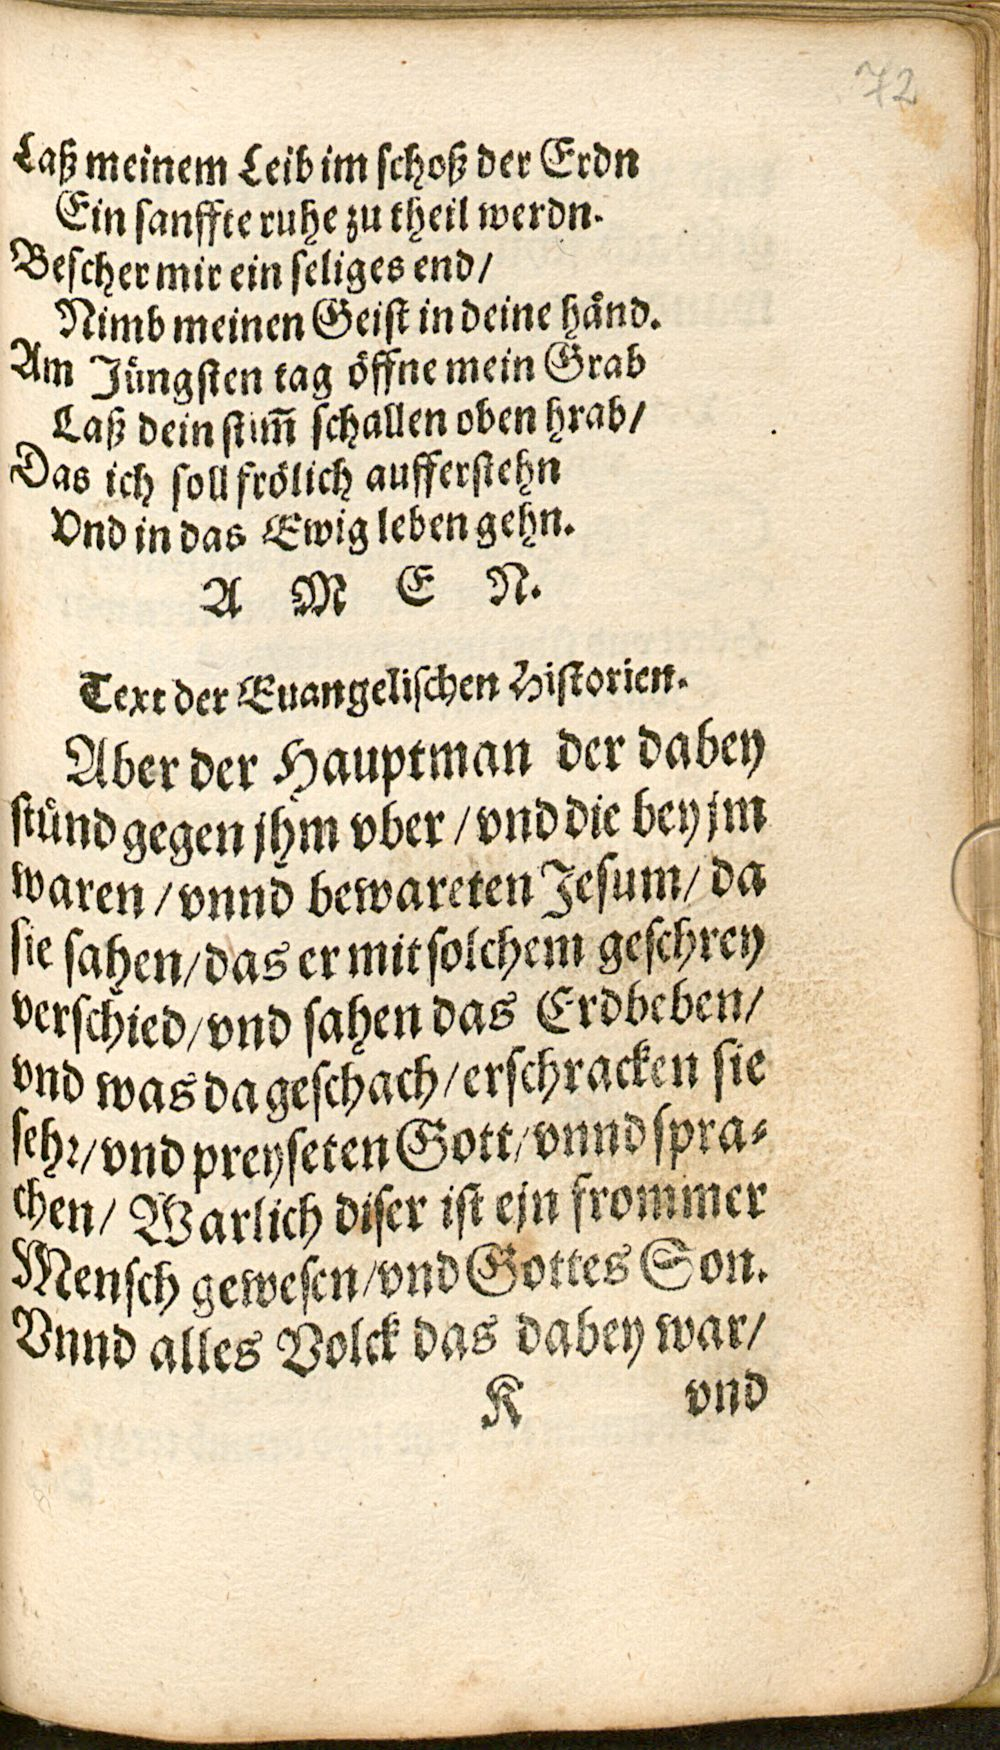 72
Laß meinem Leib im schoß der Erdn
Ein sanffte ruhe zu theil werdn.
Bescher mir ein seliges end/
Nimb meinen Geist in deine hånd.
Am Jüngsten tag öffne mein Grab
Laß dein stim̃ schallen oben hrab/
Das ich soll frölich aufferstehn
Vnd in das Ewig leben gehn.
A M E N.
Text der Euangelischen Historien.
Aber der Hauptman der dabey
stůnd gegen jhm vber / vnd die bey jm
waren / vnnd bewareten Jesum / da
sie sahen / das er mit solchem geschrey
verschied / vnd sahen das Erdbeben /
vnd was da geschach / erschracken sie
sehr / vnd preyseten Gott / vnnd spra⸗
chen / Warlich diser ist ejn frommer
Mensch gewesen / vnd Gottes Son.
Vnnd alles Volck das dabey war /
K vnd